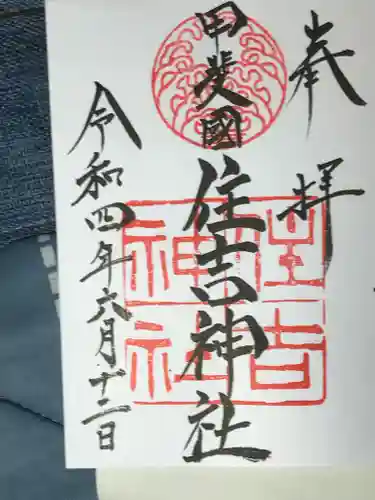 奉拝
甲斐國
住吉神社
住吉
神社
令和四年六月十二日